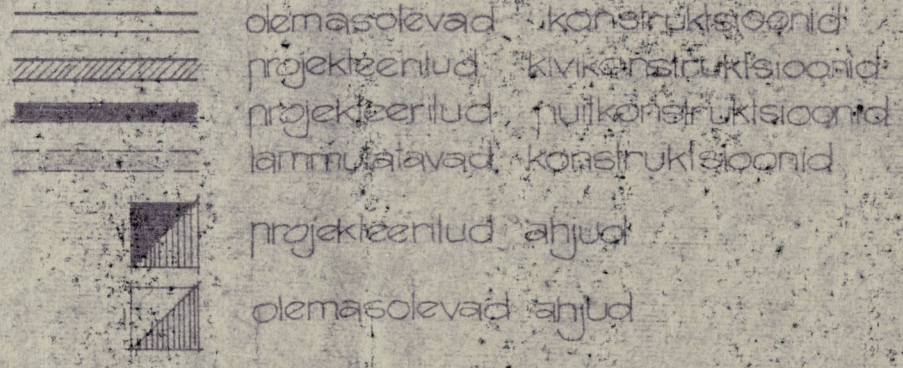 olemasolevad konstruktsioonid
projekteeritud kivikonstruktsioonid
projekteeritud puitkonstruktsioonid
lammutatavad konstruktsioonid
projekteeritud ahjud
olemasolevad ahjud